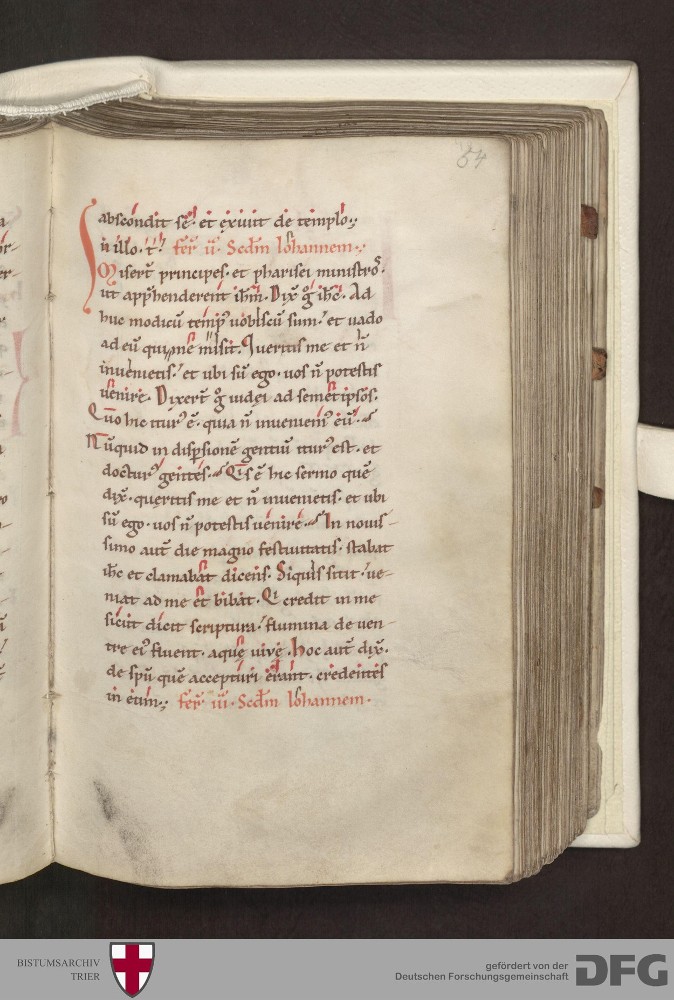 54
abscondit sē· et exivit de templo·,·
In illo· t̄· fer̄· ii· Scdm̄ Iohannem·,·
Misert̄ principes· et pharisei ministros·
ut app̄henderent ih̄m· Dix̄ g̊ ih̄c· Ad
huc modicū temp᾿ vobiscū sum· et vado
ad eū qui me misit· Queritis me et n̄
invenietis· et ubi sū ego· vos n̄ potestis
venire· Dixert̄ g̊ iudęi ad semetipsos·
Quo hic itur᾿ ē· quia n̄ inveniem᾿ eū·
Nūquid in disp̄sionē gentiū itur᾿ est· et
doctur᾿ gentes· Quis ē hic sermo quē
dix̄· queritis me et n̄ invenietis· et ubi
sū ego· vos n̄ potestis venire· In novis-
simo aut̄ die magno festivitatis· stabat
ih̄c et clamabat dicens· Siquis sitit· ve-
niat ad me et bibat· Qui credit in me
sicut dicit scriptura· flumina de ven-
tre ei᾿ fluent· aquę vivę· Hoc aut̄ dix̄·
de sp̄u quē accepturi erant· credentes
in eum·,· fer̄ iii· Scdm̄ Iohannem·
BISTUMSARCHIV
TRIER
gefördert von der
Deutschen Forschungsgemeinschaft
DFG